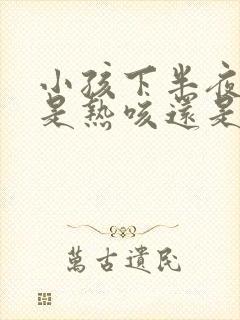 小孩下半夜
是熱咳還是
萬古遺民